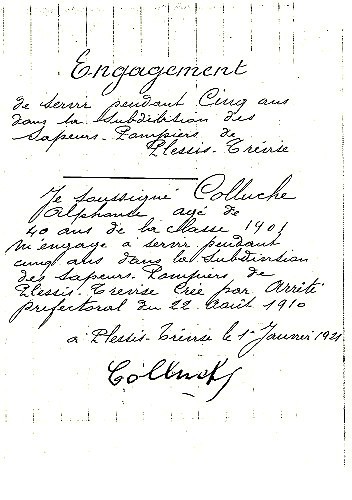 Engagement
de servir pendant Cinq ans
dans la Subdivision des
Sapeurs-Pompiers de
Plessis-Trévise
Je soussigné Colluche
Alphonse agé de
40 ans de la classe 1901
m'engage à servir pendant
cinq ans dans la Subdivision
des Sapeurs-Pompiers de
Plessis-Trévise Crée par Arrêté
préfectoral du 22 Août 1910
a Plessis-Trévise le 1er Janvier 1921
Colluche